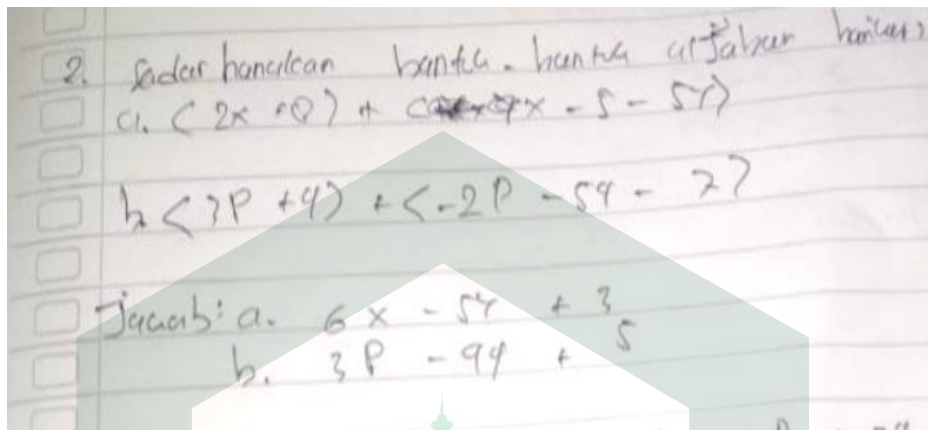 2. Sadar hanalcan bentuk. bentuk aljabar berikut
a. (2x + 8) + (4x - 5 - 5y)
b. (3P + q) + (-2P - 5q - 7)
Jawab: a. 6x - 5y + 3
b. 3P - 9q + 5